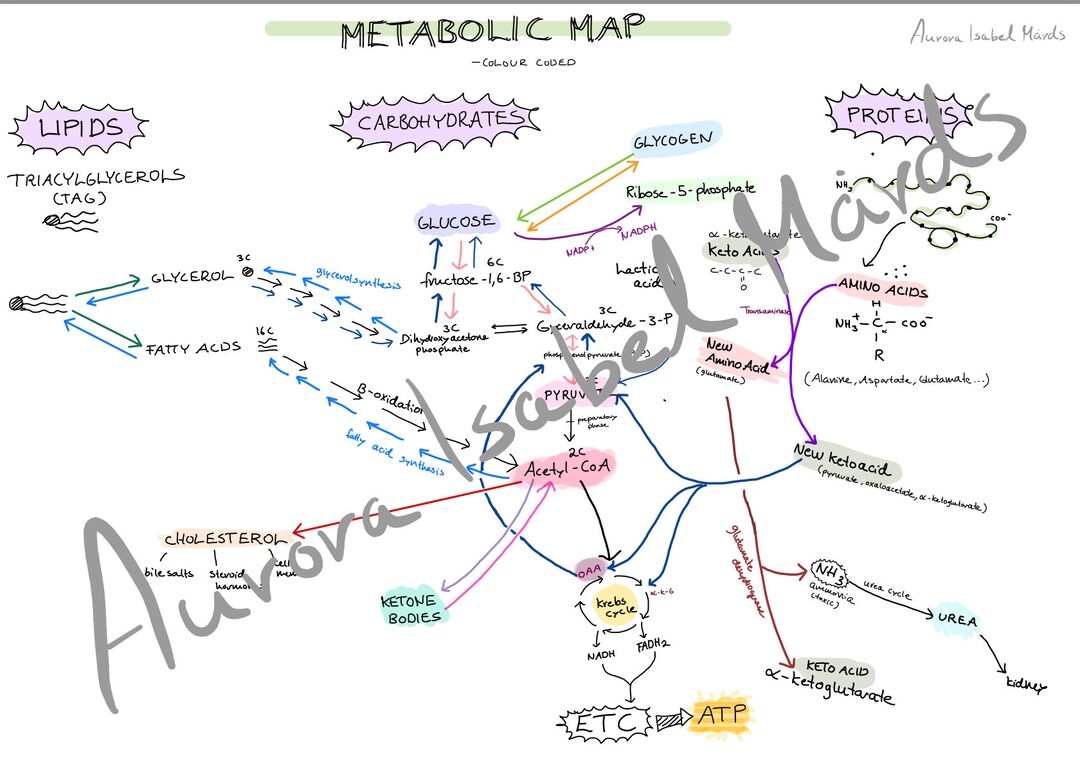 METABOLIC MAP
-COLOUR CODED
Aurora Isabel Mårds
LIPIDS
CARBOHYDRATES
PROTEINS
TRIACYLGLYCEROLS
(TAG)
GLYCOGEN
Ribose-5-phosphate
GLUCOSE
NADP+
NADPH
NH3
COO-
α-ketoglutarate
Keto Acid
C-C-C-C
O
Lactic
acid
Transaminase
AMINO ACIDS
H
NH3+ - C - COO-
α
R
(Alanine, Aspartate, Glutamate...)
3C
GLYCEROL
glycerolsynthesis
6C
fructose-1,6-BP
3C
Dihydroxyacetone
phosphate
3C
Glyceraldehyde-3-P
16C
FATTY ACDS
phosphoenolpyruvate (PEP)
New
Amino Acid
(glutamate)
PYRUVATE
preparatory
phase
β-oxidation
fatty acid synthesis
2C
Acetyl-CoA
New Ketoacid
(pyruvate, oxaloacetate, α-ketoglutarate)
CHOLESTEROL
bile salts
steroid
hormones
cell
KETONE
BODIES
OAA
α-K-G
Krebs
cycle
NADH
FADH2
glutamate
dehydrogenase
NH3
ammonia
(toxic)
urea cycle
UREA
kidney
KETO ACID
α-ketoglutarate
ETC
ATP
Aurora Isabel Mårds